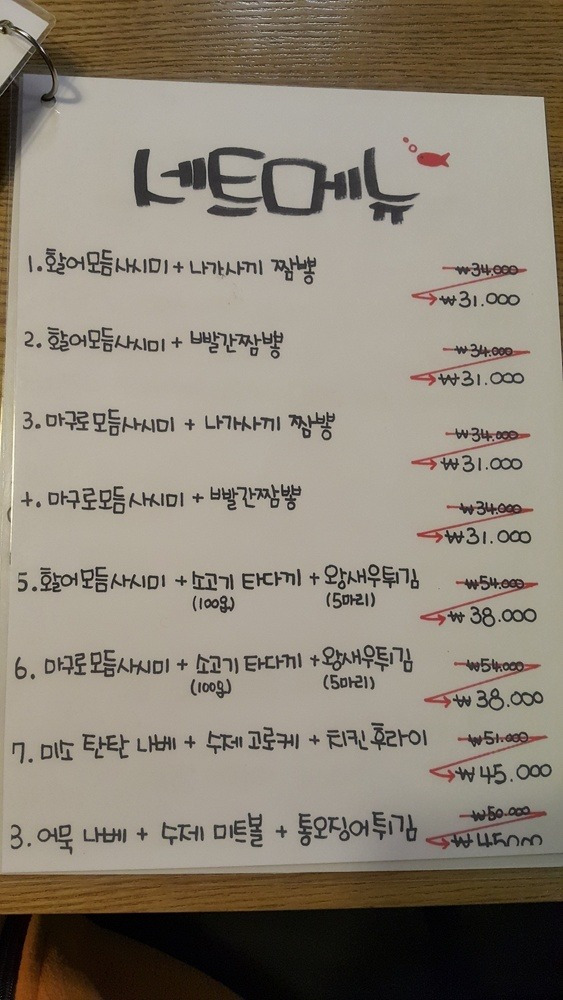 세트메뉴
1. 활어모듬사시미 + 나가사끼 짬뽕 ₩34.000
₩31.000
2. 활어모듬사시미 + 빨간짬뽕 ₩34.000
₩31.000
3. 마구로모듬사시미 + 나가사끼 짬뽕 ₩34.000
₩31.000
4. 마구로모듬사시미 + 빨간짬뽕 ₩34.000
₩31.000
5. 활어모듬사시미 + 소고기 타다끼 + 왕새우튀김 ₩54.000
(100g) (5마리) ₩38.000
6. 마구로모듬사시미 + 소고기 타다끼 + 왕새우튀김 ₩54.000
(100g) (5마리) ₩38.000
7. 미소 탄탄 나베 + 수제 고로케 + 치킨 후라이 ₩51.000
₩45.000
3. 어묵 나베 + 수제 미트볼 + 통오징어튀김 ₩50.000
₩45.000